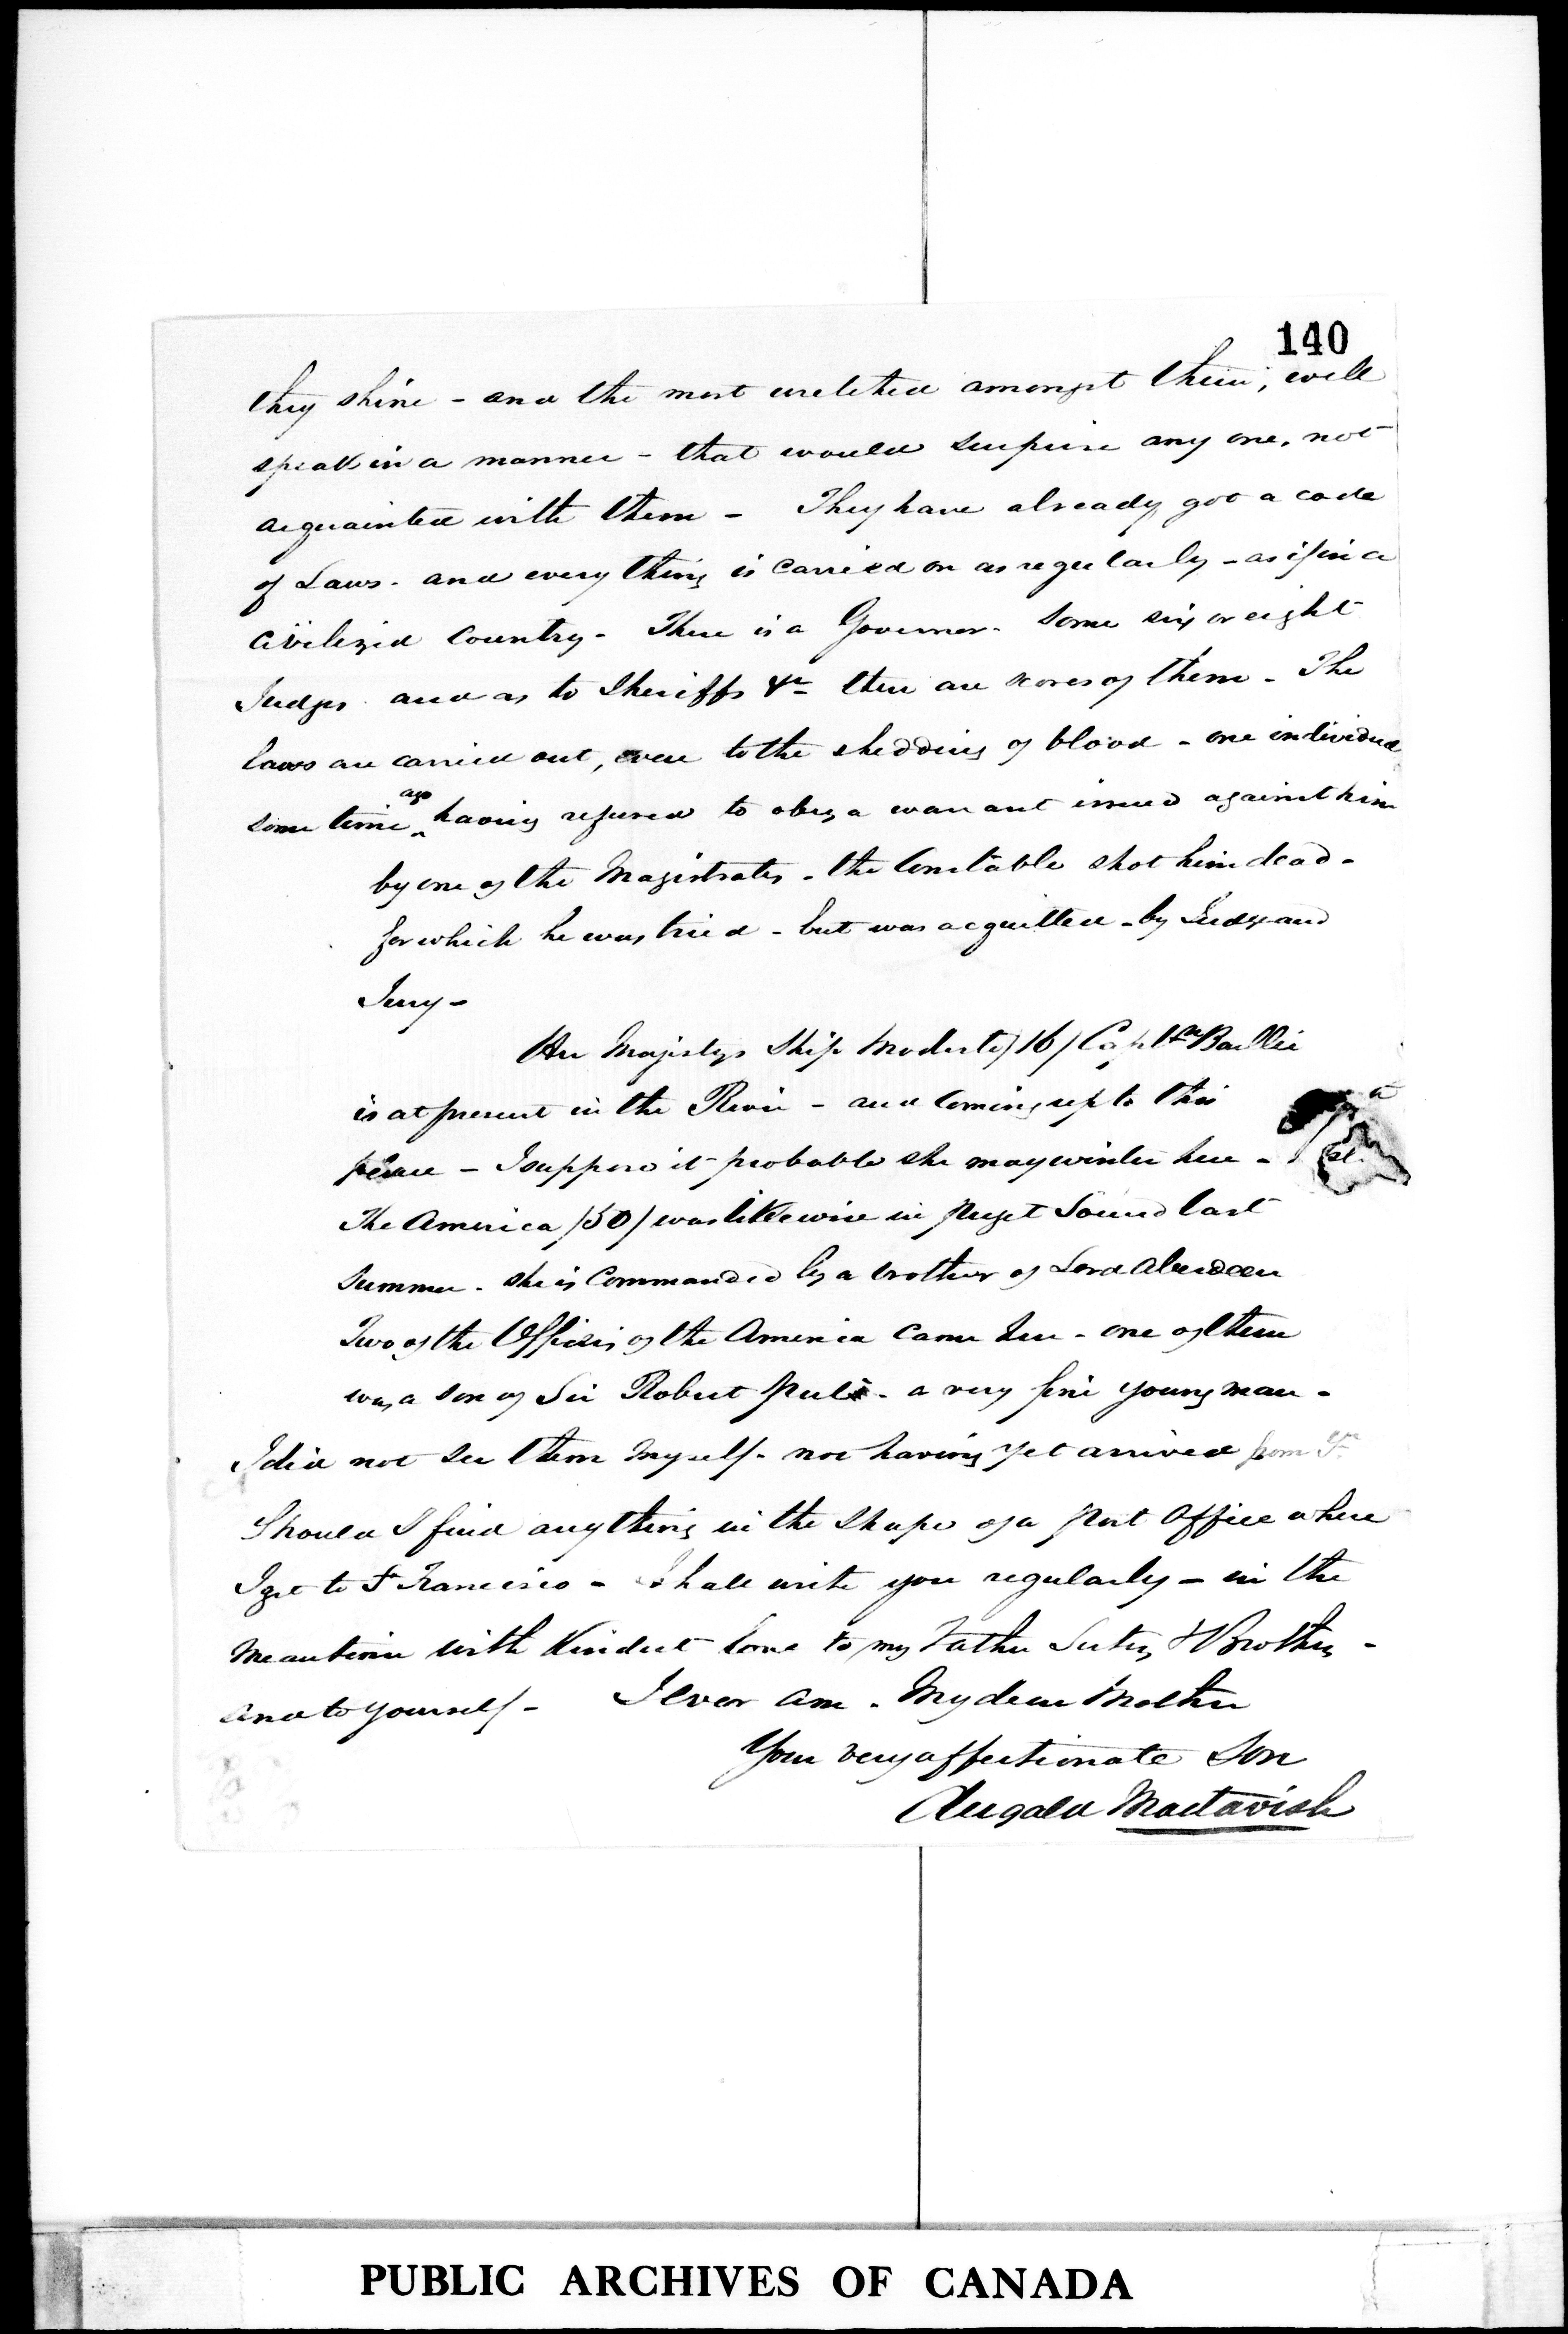 140
they shine - and the most wretched amongst them, will
speak in a manner - that would surprise any one, not
acquainted with them - They have already got a code
of Laws - and every thing is carried on as regularly - as if in a
civilized Country - There is a Governor - some six or eight
Judges and as to Sheriffs &c there are scores of them - The
laws are carried out, even to the shedding of blood - one individual
some time ago having refused to obey a warrant issued against him
by one of the Magistrates - the Constable shot him dead -
for which he was tried - but was acquitted - by Judge and
Jury -
Her Majestys Ship Modeste /16/ Captn Baillie
is at present in the River - and coming up to this
place - I suppose it probable she may winter here -
The America /50/ was likewise in Puget Sound last
summer - she is Commanded by a brother of Lord Aberdeen
Two of the Officers of the America came here - one of them
was a son of Sir Robert Peel - a very fine young man -
I did not see them myself - not having yet arrived from
Should I find anything in the shape of a Post Office where
I go to St Francisco - I shall write you regularly - in the
meantime with kindest love to my Father Sisters & Brothers -
and to yourself - I ever am - My dear Mother
Your very affectionate Son
Dugald Mactavish
PUBLIC ARCHIVES OF CANADA